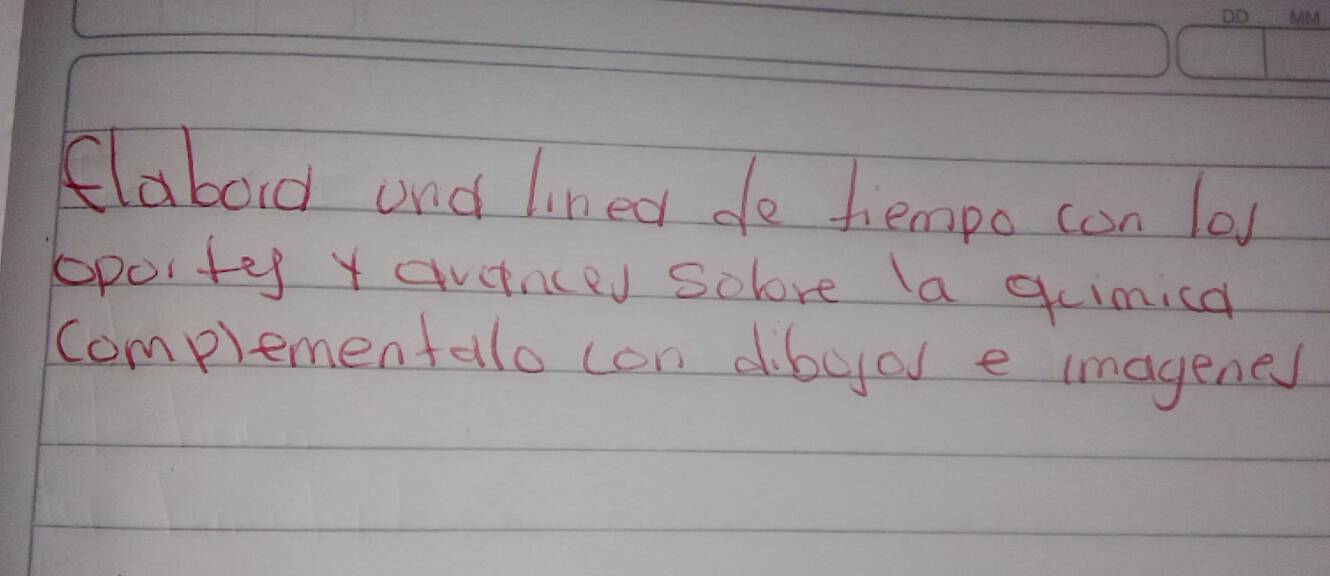 DD MM
Elabora una linea de tiempo con los
aportes y avances sobre la quimica
Complementalo con dibujos e imagenes